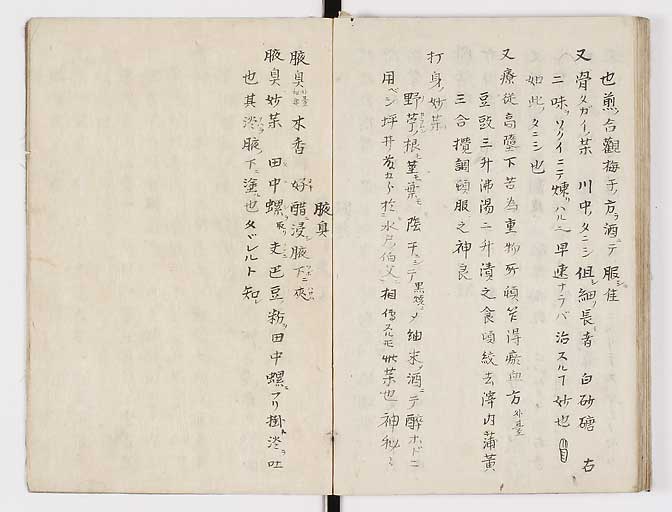 也煎合歡梅干ノ方ヲ酒ニテ服佳
又骨タガイノ薬 川中ノタニシ 但細ク長者 白砂糖 右
二味ヲソクイニテ煉リハルヘ早速ナラバ治スルフ妙也
如此ノタニシ也
又療從高墮下若為重物所頓 得瘀血方
豆豉三升沸湯二升漬之食頃絞去滓内蒲黄
三合攪調頓服之神良
打身ノ妙薬
野苧根モ茎モ葉モ陰干ニシテ黒焼ニメ細末ノ酒ニテ酔ホドニ
用ベシ坪井 ヨリ於水戸ノ伯父ニ相傳スル此薬也神秘々
腋臭
腋臭 木香 好酢浸腋下ニ夾
腋臭妙薬 田中螺ヲ取リ 巴豆ノ粉ヲ田中螺ニフリ掛ト 吐
也其 腋下ニ塗也タヾレルト知シ